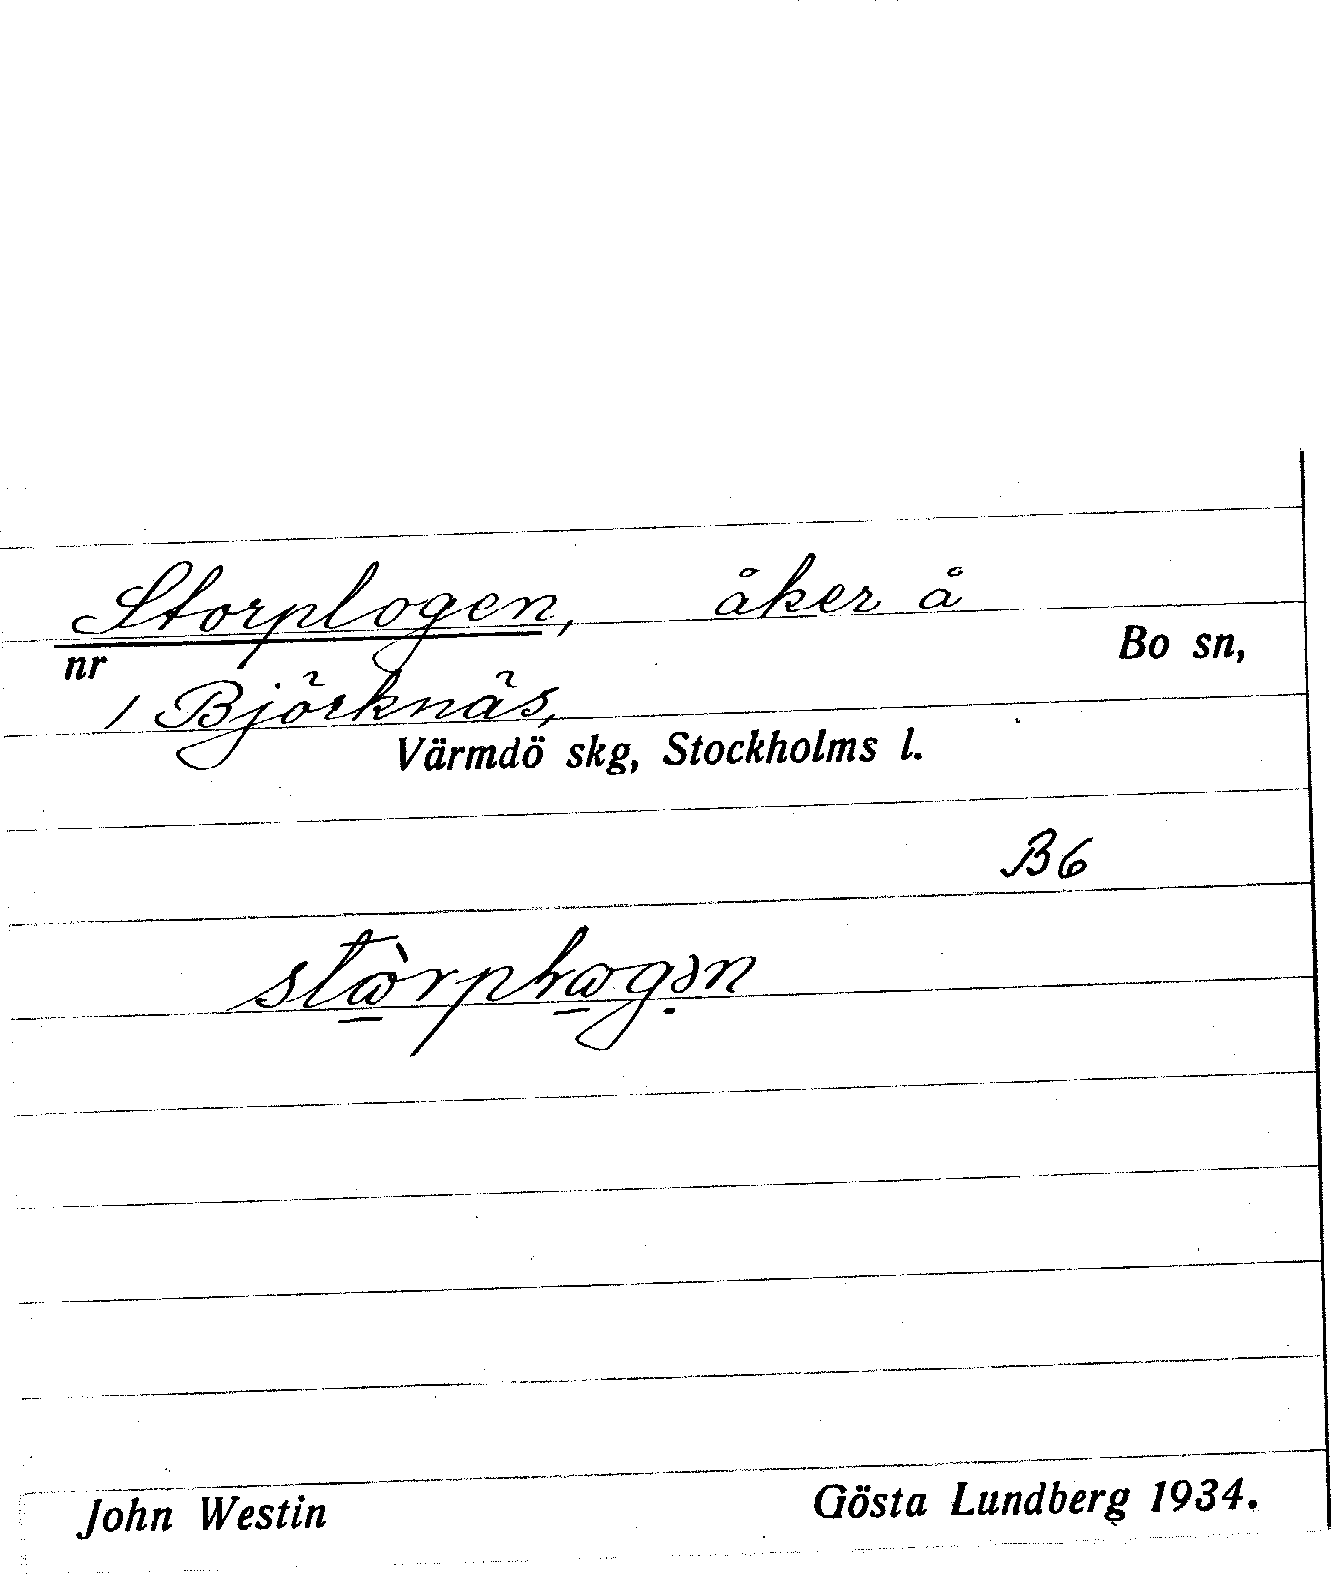 Storplogen, åker å
nr Bo sn,
1 Björknäs,
Värmdö skg, Stockholms l.
B6
John Westin Gösta Lundberg 1934.